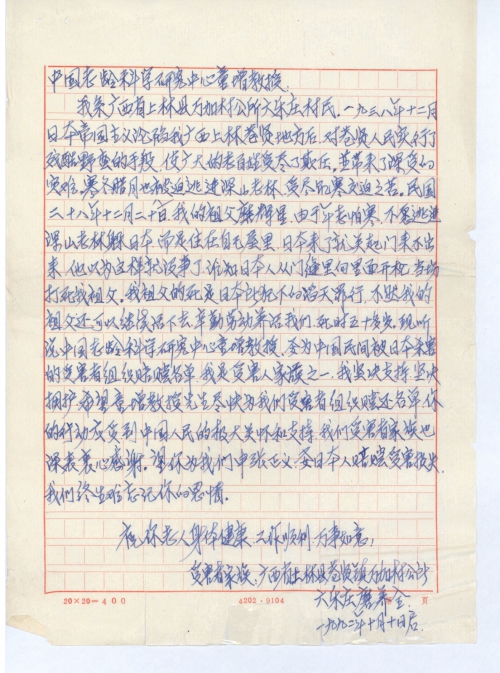 中国老龄科学研究中心童增教授.
我系广西省上林县万加村公所六乐庄村民.一九三八年十二月
日本帝国主义沦陷我广西上林巷贤地方后.对巷贤人民实行了
残酷野蛮的手段,使广大的老百姓受尽了欺压.并带来了深受的
灾难.寒冬腊月也被迫逃进深山老林,受尽饥寒交迫之苦。民国
二十八年十二月二十日,我的祖父磨辉星,由于年老怕寒,不愿逃进
深山老林躲日本,而是住在自己屋里,日本来了就关起门来不出
来,他以为这样就没事了,谁知日本人从门缝里向里面开枪,当场
打死我祖父。我祖父的死是日本所犯下的滔天罪行,不然我的
祖父还可以继续活下去,辛勤劳动养活我们.死时五十多岁.现听
说中国老龄科学研究中心童增教授,要为中国民间被日本杀害
的受害者组织赔赔名单.我是受害人家族之一.我坚决支持,坚决
拥护.希望童增教授先生尽快为我们受害者组织赔还名单.你
的行动应受到中国人民的极大关怀和支持.我们受害者家族也
深表衷心感谢。望你为我们申张正义,要日本人赔赔受害损失.
我们终生难忘记你的恩情。
祝你老人身体健康.工作顺利.万事如意,
受害者家族.广西省上林县巷贤镇万加村公所
六乐庄磨养全.
一九九二年十月十日启.
20×20=400 4202·9104 页